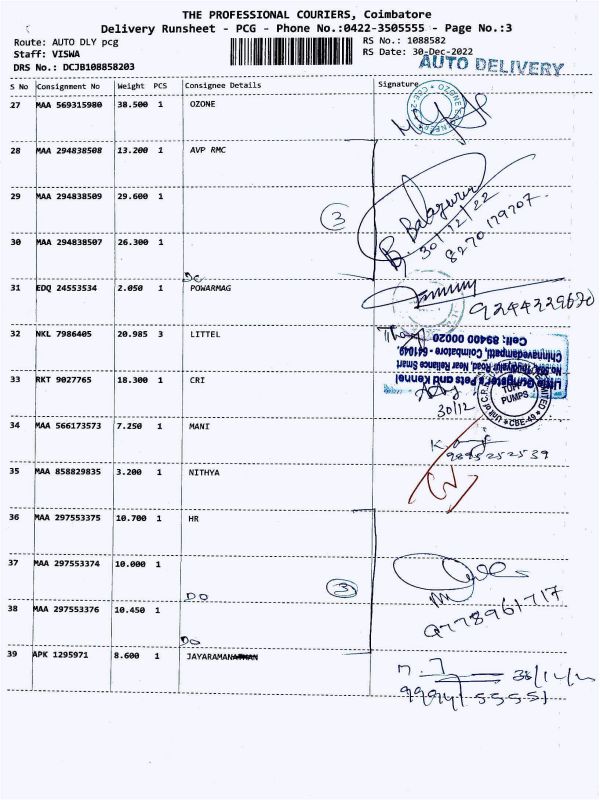 THE PROFESSIONAL COURIERS, Coimbatore
Delivery Runsheet - PCG - Phone No.:0422-3505555 - Page No.:3
Route: AUTO DLY pcg RS No.: 1088582
Staff: VISWA RS Date: 30-Dec-2022
DRS No.: DCJB108858203 AUTO DELIVERY
S No Consignment No Weight PCS Consignee Details Signature
27 MAA 569315980 38.500 1 OZONE
28 MAA 294838508 13.200 1 AVP RMC
29 MAA 294838509 29.600 1
3
B. Balagurur
30/12/22
8270179707
30 MAA 294838507 26.300 1
31 EDQ 24553534 2.050 1 POWARMAG
9244329620
32 NKL 7986405 20.985 3 LITTEL
Cell: 89400 00020
Chinnavedampatti, Coimbatore - 641049.
Near Reliance Smart
Little Gangster's Pets and Kennel
33 RKT 9027765 18.300 1 CRI
TUFF PUMPS
CBE-49
30/12
34 MAA 566173573 7.250 1 MANI
9895252539
35 MAA 858829835 3.200 1 NITHYA
36 MAA 297553375 10.700 1 HR
37 MAA 297553374 10.000 1
DO
3
38 MAA 297553376 10.450 1
DO
9778961717
39 APK 1295971 8.600 1 JAYARAMAN